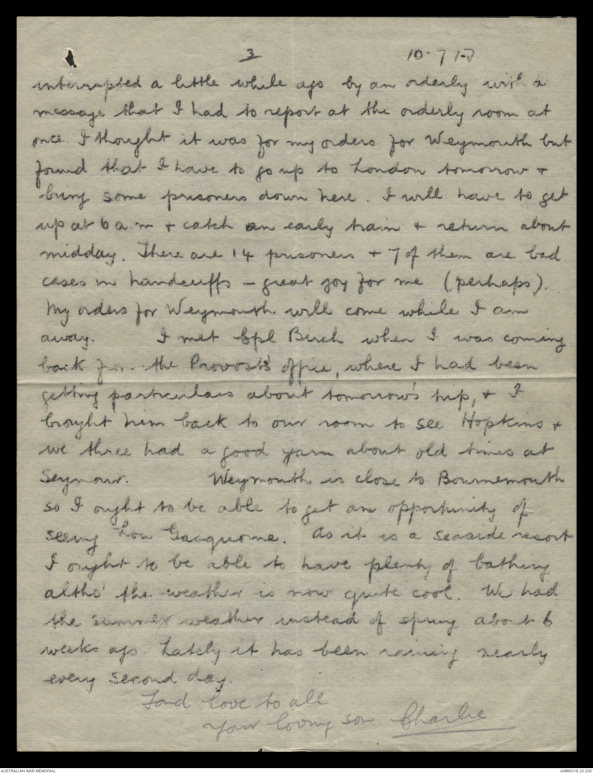 3 10-7 17
interrupted a little while ago by an orderly with a
message that I had to report at the orderly room at
once. I thought it was for my orders for Weymouth but
found that I have to go up to London tomorrow +
bring some prisoners down here. I will have to get
up at 6 a.m + catch an early train + return about
midday. There are 14 prisoners + 7 of them are bad
cases in handcuffs - great joy for me (perhaps).
My orders for Weymouth will come while I am
away. I met Cpl Birch when I was coming
back from the Provost's office, where I had been
getting particulars about tomorrow's trip, + I
brought him back to our room to see Hopkins +
we three had a good yarn about old times at
Seymour. Weymouth is close to Bournemouth
so I ought to be able to get an opportunity of
seeing Lou Gasquoine. As it is a seaside resort
I ought to be able to have plenty of bathing
altho' the weather is now quite cool. We had
the summer weather instead of spring about 6
weeks ago. Lately it has been raining nearly
every second day.
Fond love to all
Your loving son Charlie
AUSTRALIAN WAR MEMORIAL